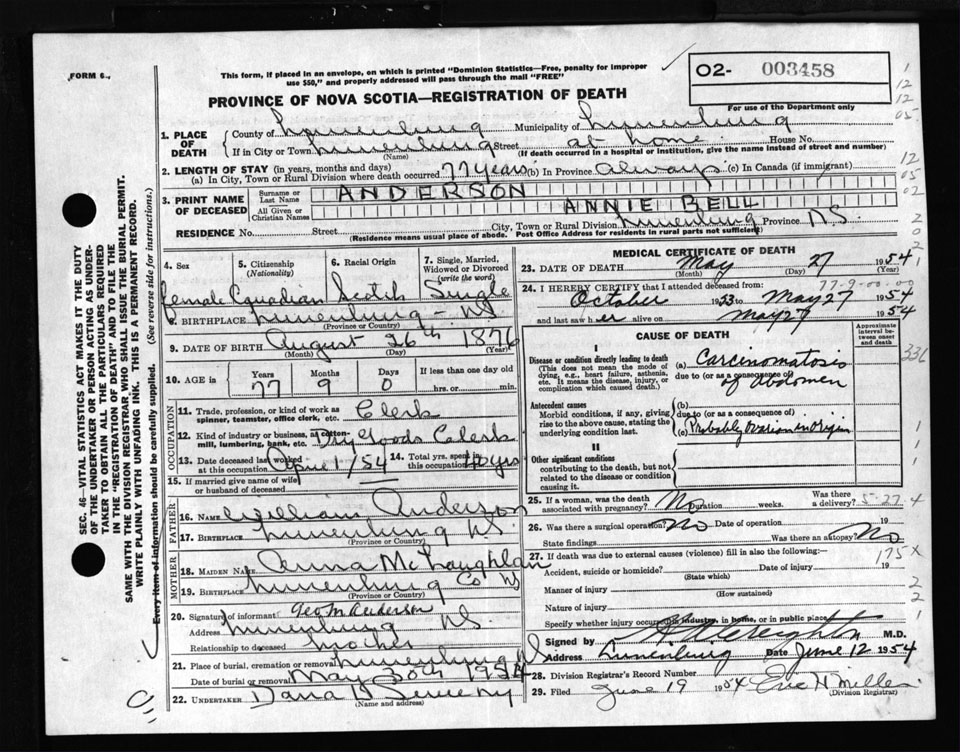 FORM 6.
This form, if placed in an envelope, on which is printed "Dominion Statistics—Free, penalty for improper
use $50," and properly addressed will pass through the mail "FREE"
02- 003458
For use of the Department only
PROVINCE OF NOVA SCOTIA—REGISTRATION OF DEATH
1. PLACE OF DEATH
County of Lunenburg Municipality of Lunenburg
If in City or Town Lunenburg Street at House No.
(Name) (If death occurred in a hospital or institution, give the name instead of street and number)
2. LENGTH OF STAY (in years, months and days)
(a) In City, Town or Rural Division where death occurred 77 years (b) In Province always (c) In Canada (if immigrant)
3. PRINT NAME OF DECEASED
Surname or Last Name ANDERSON
All Given or Christian Names ANNIE BELL
RESIDENCE No. Street City, Town or Rural Division Lunenburg Province N.S.
(Residence means usual place of abode. Post Office Address for residents in rural parts not sufficient)
4. Sex
5. Citizenship (Nationality)
6. Racial Origin
7. Single, Married, Widowed or Divorced (write the word)
female Canadian Scotch Single
8. BIRTHPLACE Lunenburg - NS
(Province or Country)
9. DATE OF BIRTH August 26th 1876
(Month) (Day) (Year)
10. AGE in Years Months Days If less than one day
77 9 0 hrs. or min.
OCCUPATION
11. Trade, profession, or kind of work as spinner, teamster, office clerk, etc. Clerk
12. Kind of industry or business, as cotton-mill, lumbering, bank, etc. Dry Goods Clerk
13. Date deceased last worked at this occupation April 1/54
14. Total yrs. spent in this occupation 40 yrs
15. If married give name of wife or husband of deceased
FATHER
16. Name William Anderson
17. Birthplace Lunenburg NS
(Province or Country)
MOTHER
18. Maiden Name Anna McLaughlan
19. Birthplace Lunenburg Co NS
(Province or Country)
20. Signature of informant Geo M Anderson
Address Lunenburg NS.
Relationship to deceased
21. Place of burial, cremation or removal Lunenburg NS
Date of burial or removal May 30th 1954
22. UNDERTAKER Dana H Sweeny
(Name and address)
MEDICAL CERTIFICATE OF DEATH
23. DATE OF DEATH May 27 1954
(Month) (Day) (Year)
77-9-00-00
24. I HEREBY CERTIFY that I attended deceased from:
October 1923 to May 27 1954
and last saw h er alive on May 27 1954
CAUSE OF DEATH
Approximate interval between onset and death
I
Disease or condition directly leading to death
(This does not mean the mode of dying, e.g., heart failure, asthenia, etc. It means the disease, injury, or complication which caused death.)
(a) Carcinomatosis
due to (or as a consequence of)
of abdomen
Antecedent causes
Morbid conditions, if any, giving rise to the above cause, stating the underlying condition last.
(b)
due to (or as a consequence of)
(c) Probably Ovarian in Origin
II
Other significant conditions
contributing to the death, but not related to the disease or condition causing it.
25. If a woman, was the death associated with pregnancy? No Duration weeks. Was there a delivery? 5-27.4
26. Was there a surgical operation? No Date of operation 19
State findings Was there an autopsy? No
27. If death was due to external causes (violence) fill in also the following:—
175X
Accident, suicide or homicide? Date of injury 19
(State which)
Manner of injury
(How sustained)
Nature of injury
Specify whether injury occurred in industry, in home, or in public place
Signed by Creighton M.D.
Address Lunenburg Date June 12 1954
28. Division Registrar's Record Number
29. Filed June 19 1954 Eric H Miller
(Division Registrar)
SEC. 46—VITAL STATISTICS ACT MAKES IT THE DUTY
OF THE UNDERTAKER OR PERSON ACTING AS UNDER-
TAKER TO OBTAIN ALL THE PARTICULARS REQUIRED
IN THE "REGISTRATION OF DEATH" AND TO FILE THE
SAME WITH THE DIVISION REGISTRAR, WHO SHALL ISSUE THE BURIAL PERMIT.
WRITE PLAINLY WITH UNFADING INK. THIS IS A PERMANENT RECORD.
Every item of information should be carefully supplied. (See reverse side for instructions.)
1
12
12
05
12
05
02
2
0
2
1
1
1
2
2
1